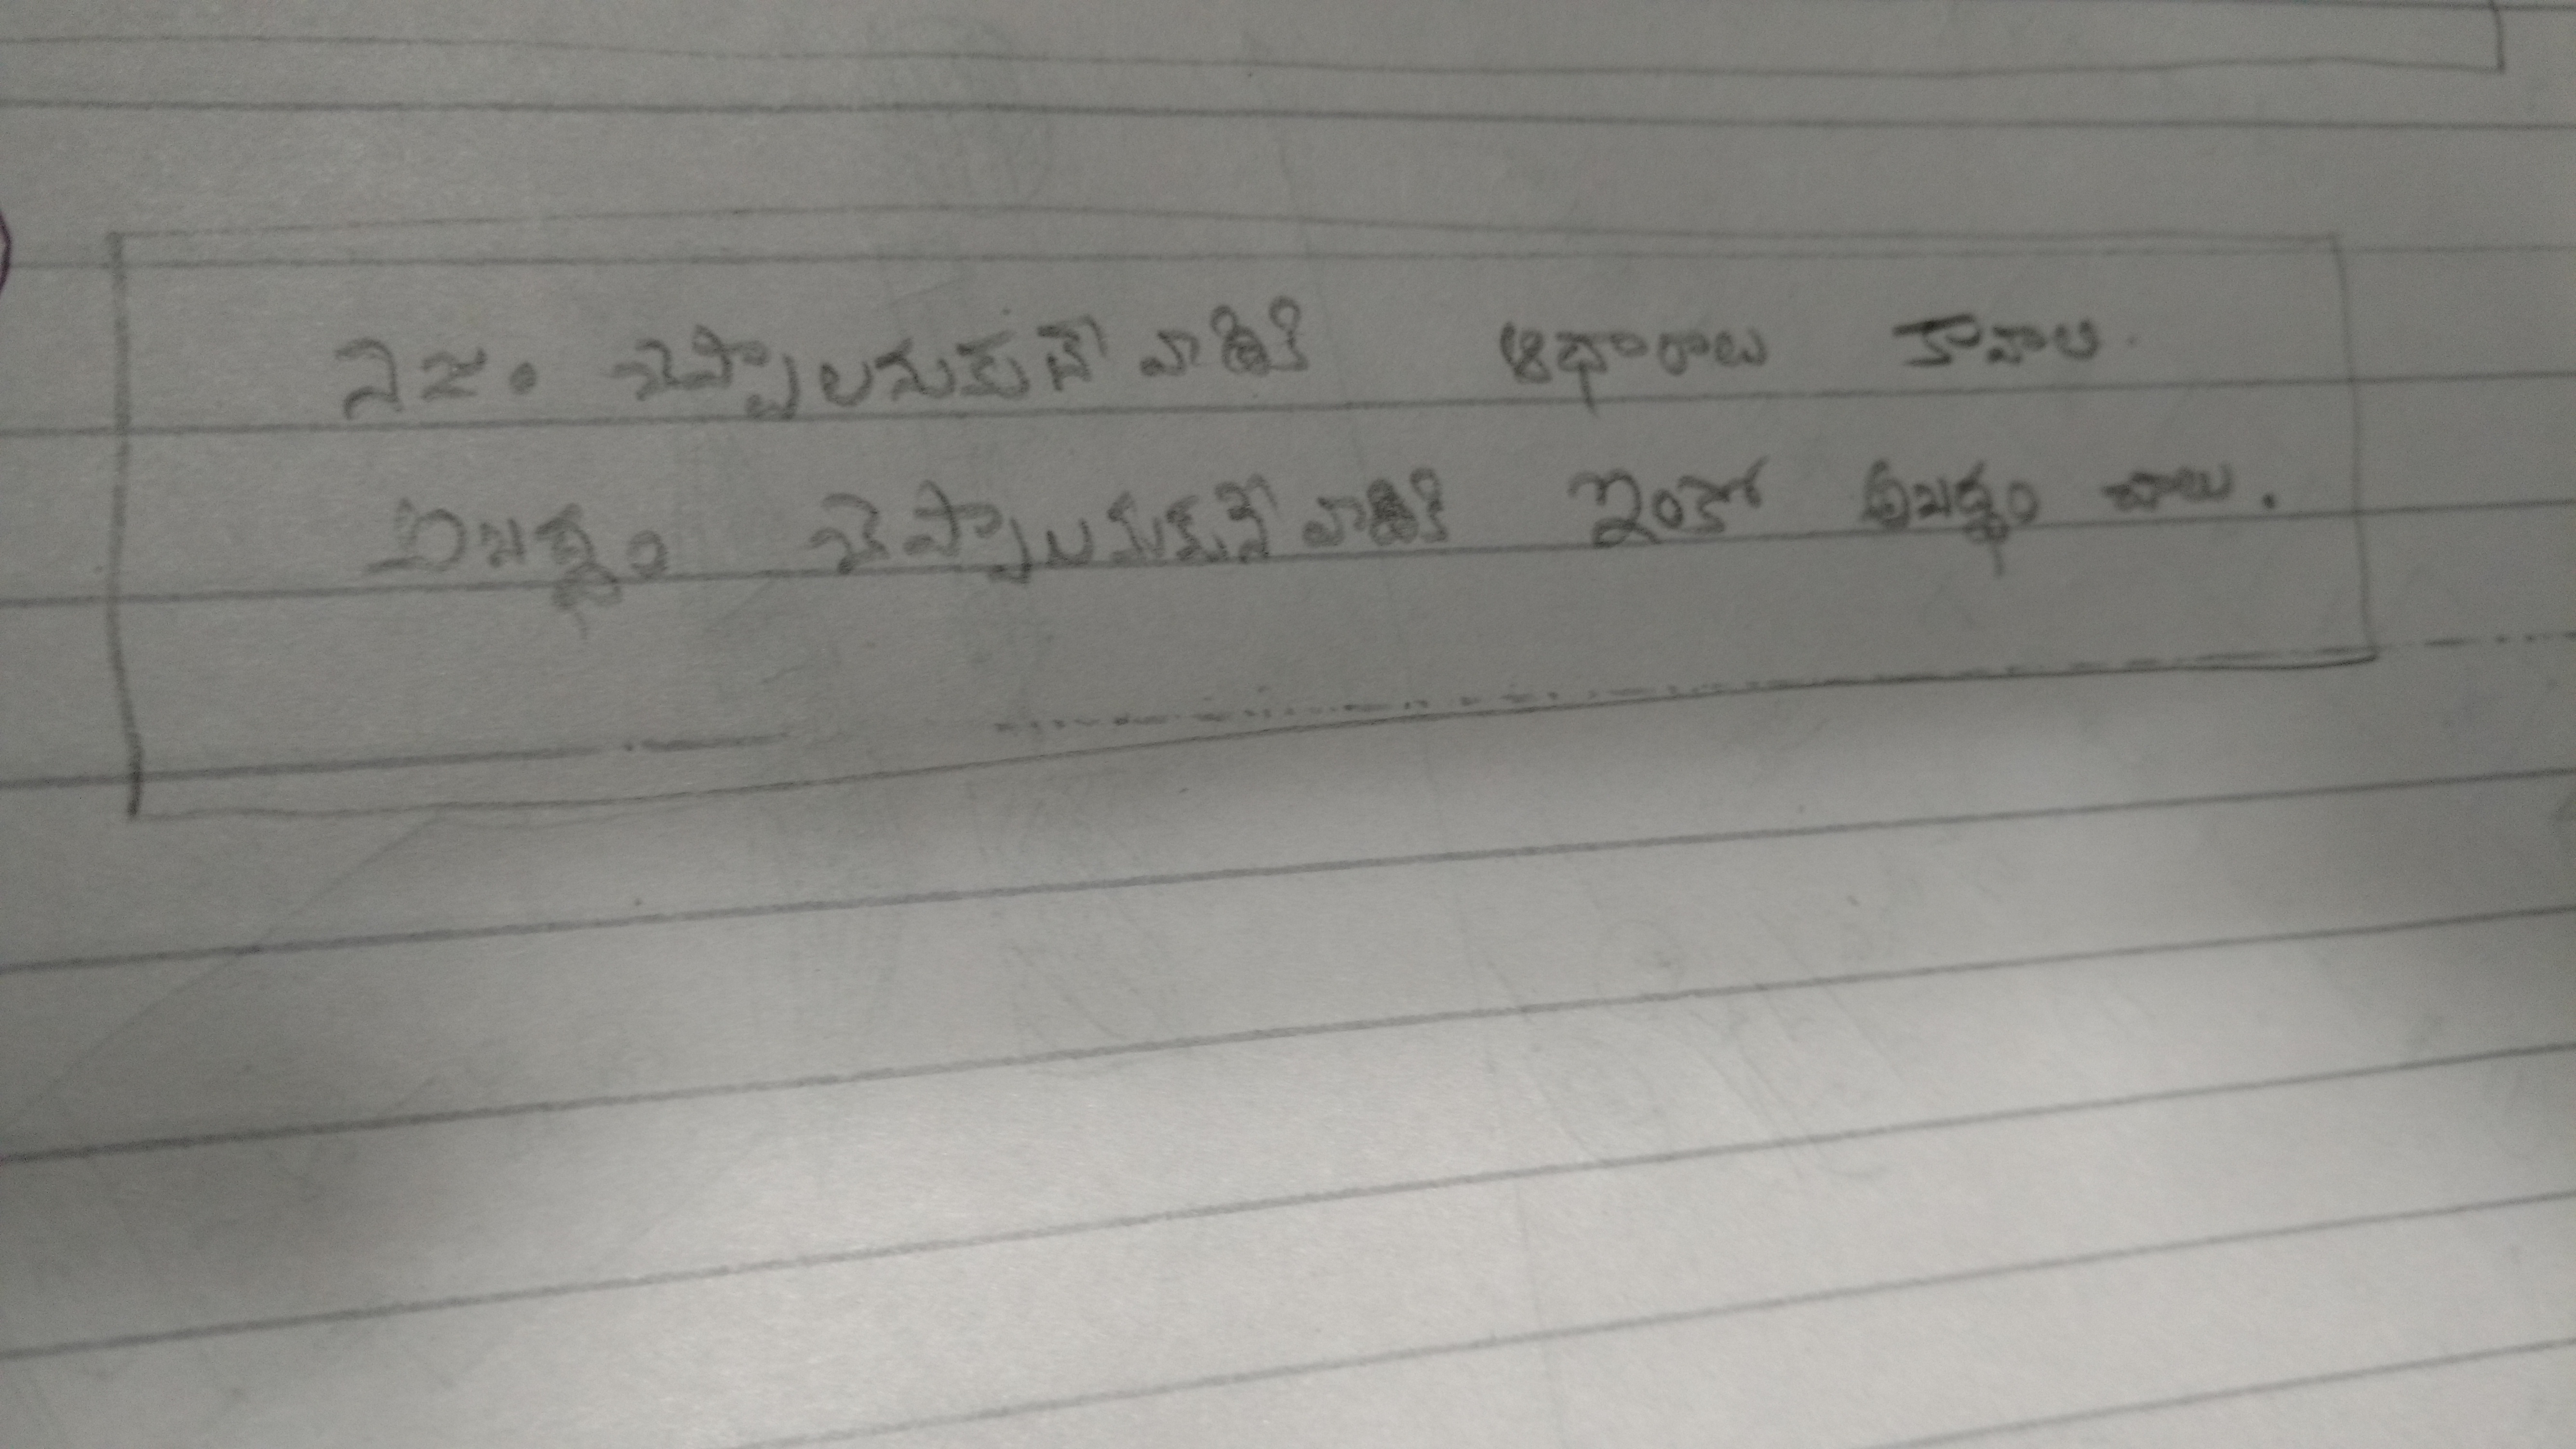 నిజం చెప్పాలనుకునే వాడికి ఆధారాలు కావాలి.
అబద్ధం చెప్పాలనుకునే వాడికి ఇంకో అబద్ధం చాలు.